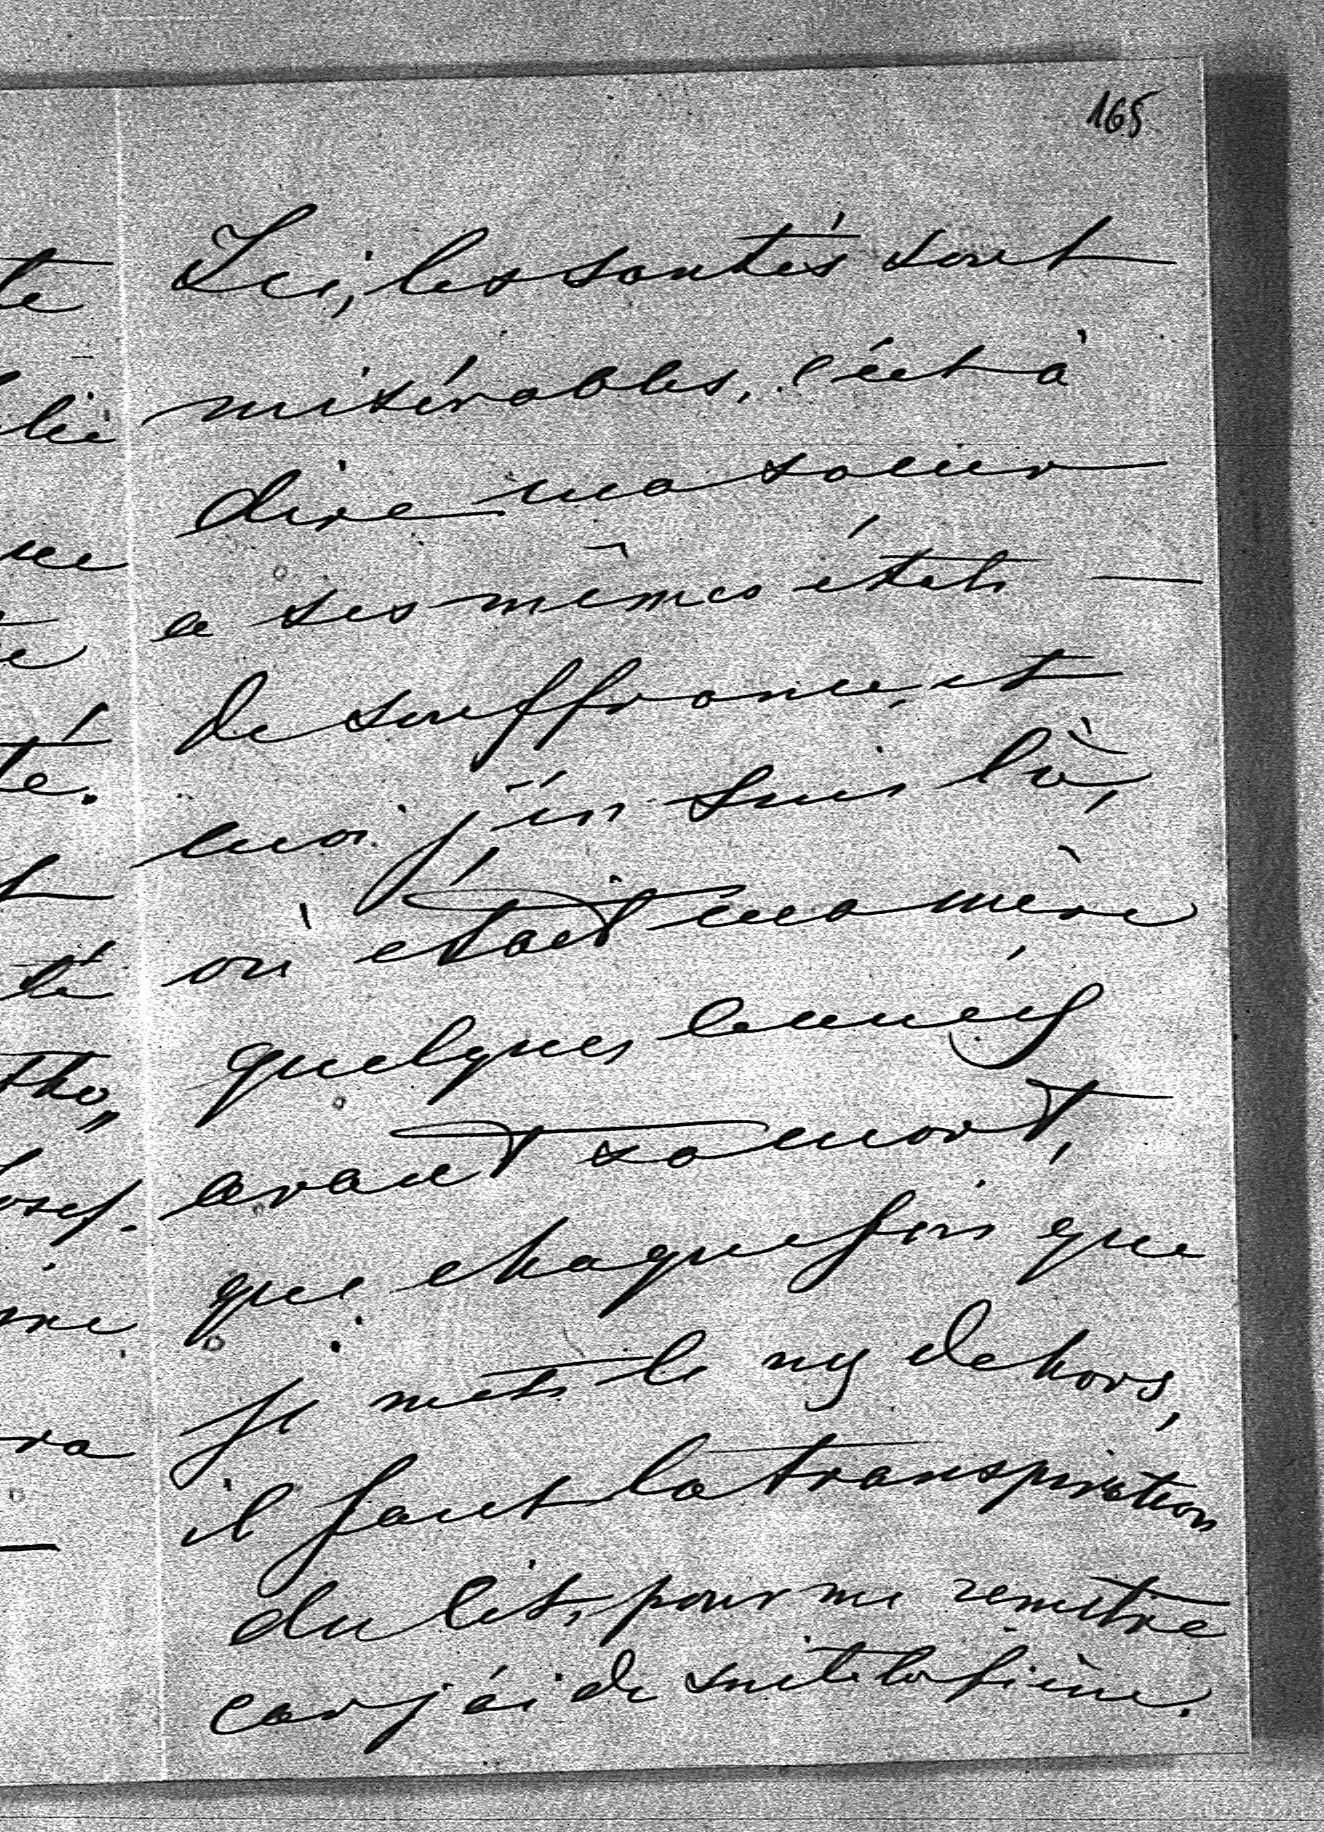 165
Ici, les santés sont
misérables, c'est à
dire ma soeur
a ses mêmes états
de souffrance, et
moi j'en suis là,
où était ma mère
quelques années
avant sa mort,
que chaque fois que
je mets le nez dehors,
il faut la transpiration
du lit, pour me remettre
car j'ai de suite la fièvre.